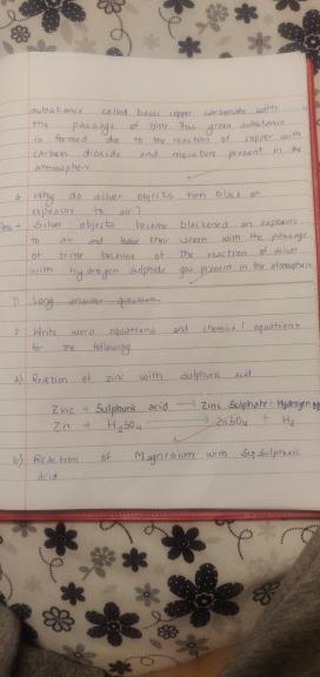 substance called basic copper carbonate with
the passage of time. This green substance
is formed due to the reaction of copper with
carbon dioxide and moisture present in the
atmosphere
Why do silver objects turn black on
exposure to air?
Silver objects become blackened on exposure
to air and lose their sheen with the passage
of time because of the reaction of silver
with hydrogen sulphide gas present in the atmosphere
Long answer question
Write word equations and chemical equations
for the following
a) Reaction of zinc with sulphuric acid
Zinc + Sulphuric acid → Zinc Sulphate + Hydrogen
Zn + H2SO4 → ZnSO4 + H2
b) Reaction of Magnesium with Sulphuric
acid